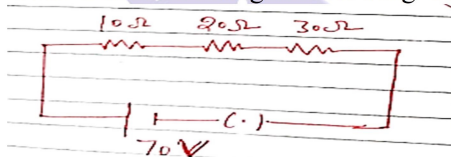 10Ω 20Ω 30Ω
(.)
70V